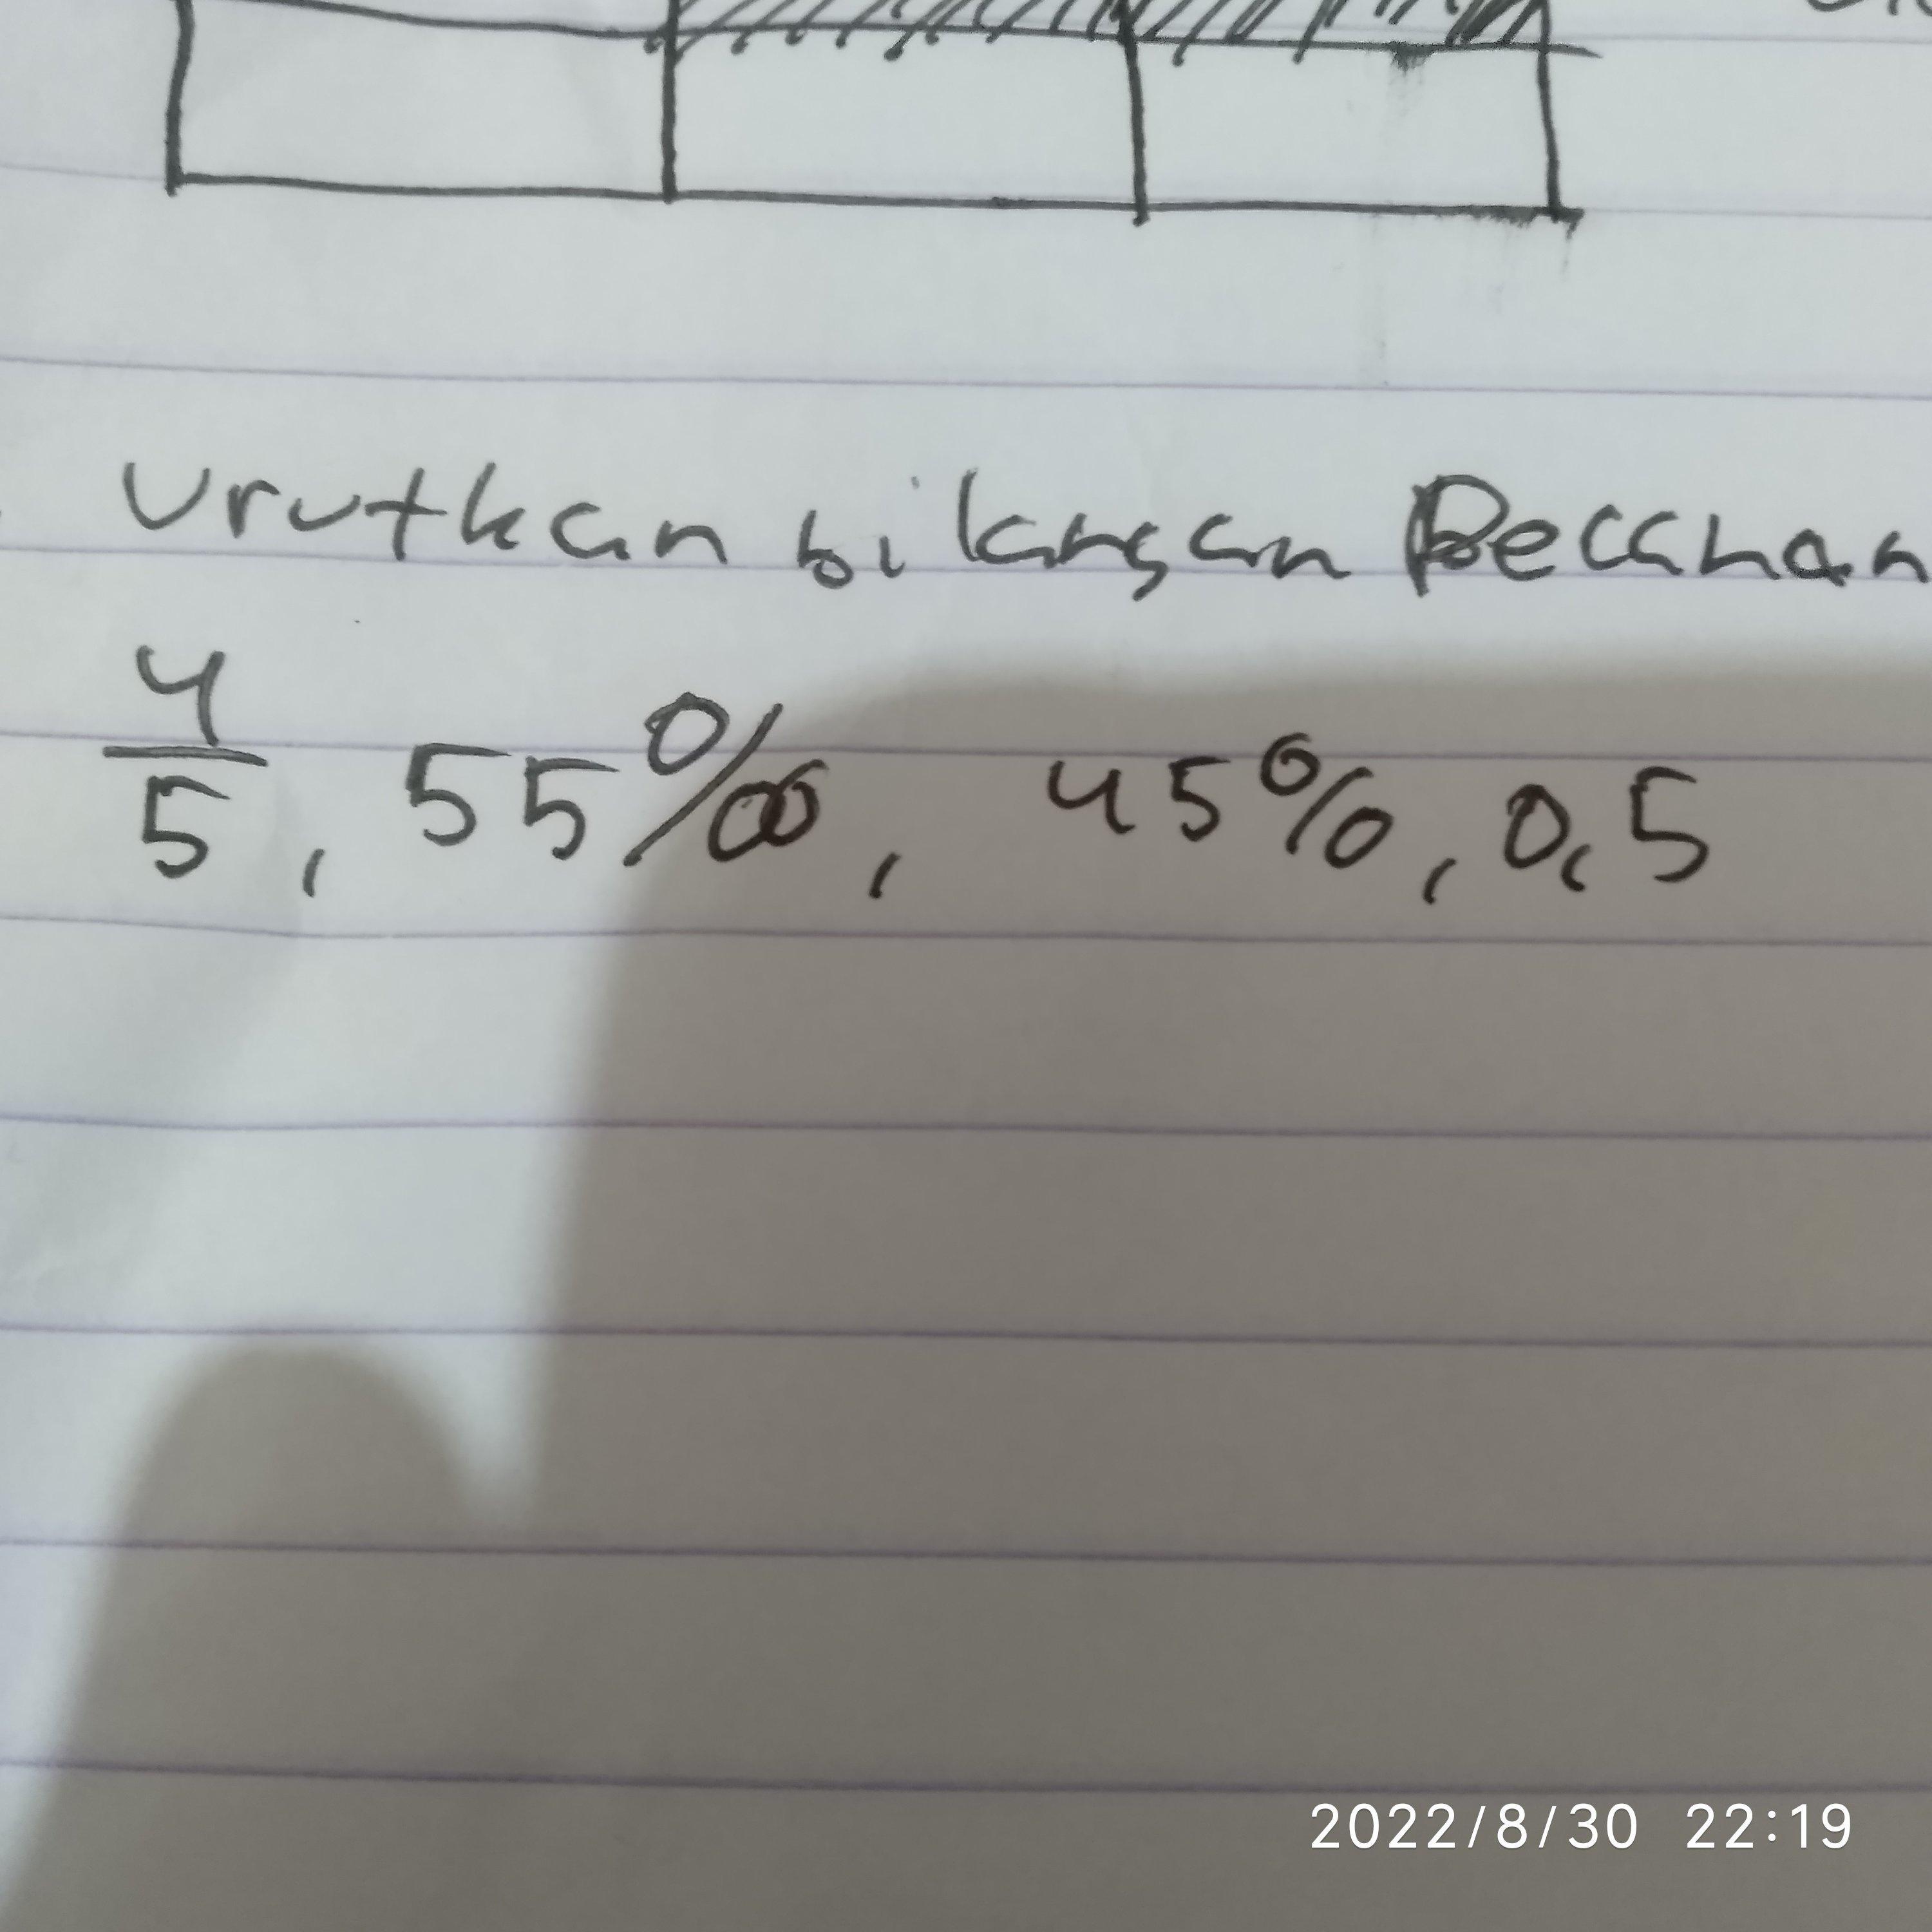 Urutkan bilangan Pecahan
4/5, 55‰, 45%, 0,5
2022/8/30 22:19